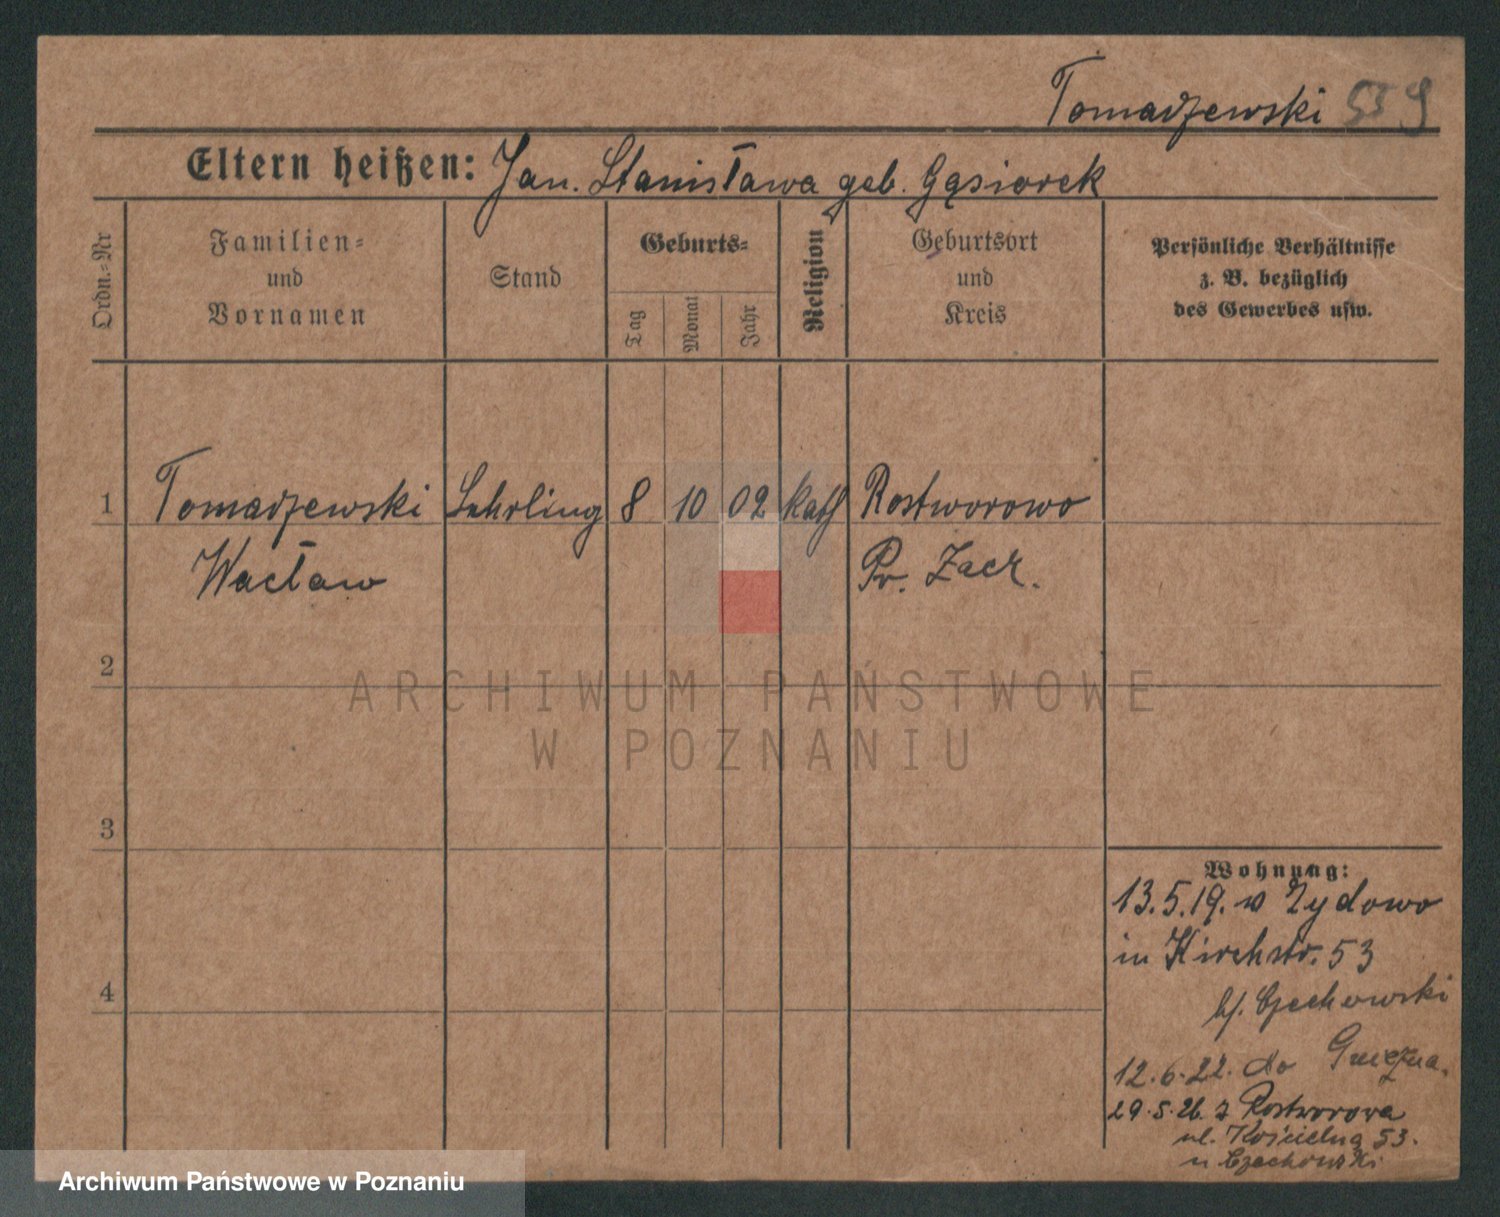 Tomaszewski 559
Eltern heißen: Jan. Stanisława geb. Gąsiorek
Ordn.=Nr
Familien=
und
Vornamen
Stand
Geburts=
Tag
Monat
Jahr
Religion
Geburtsort
und
Kreis
Persönliche Verhältnisse
z. B. bezüglich
des Gewerbes usw.
1 Tomaszewski Lehrling 8 10 02 kath Rostworowo
Wacław Pr. Zach.
2
ARCHIWUM PAŃSTWOWE
W POZNANIU
3
4
Wohnung:
13.5.19. v Zydowo
in Kirchstr. 53
b/. Czechowski
12.6.22. do Gniezna.
29.5.26. z Rostworowa
ul. Kościelna 53.
u Czechowski
Archiwum Państwowe w Poznaniu